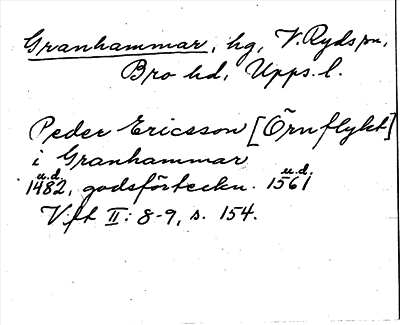 Granhammar, hg, V. Ryds sn,
Bro hd, Upps. l.
Peder Ericsson [Örnflykt]
i Granhammar
u.d. u.d.
1482, godsförteckn. 1561
Vft II: 8-9, s. 154.